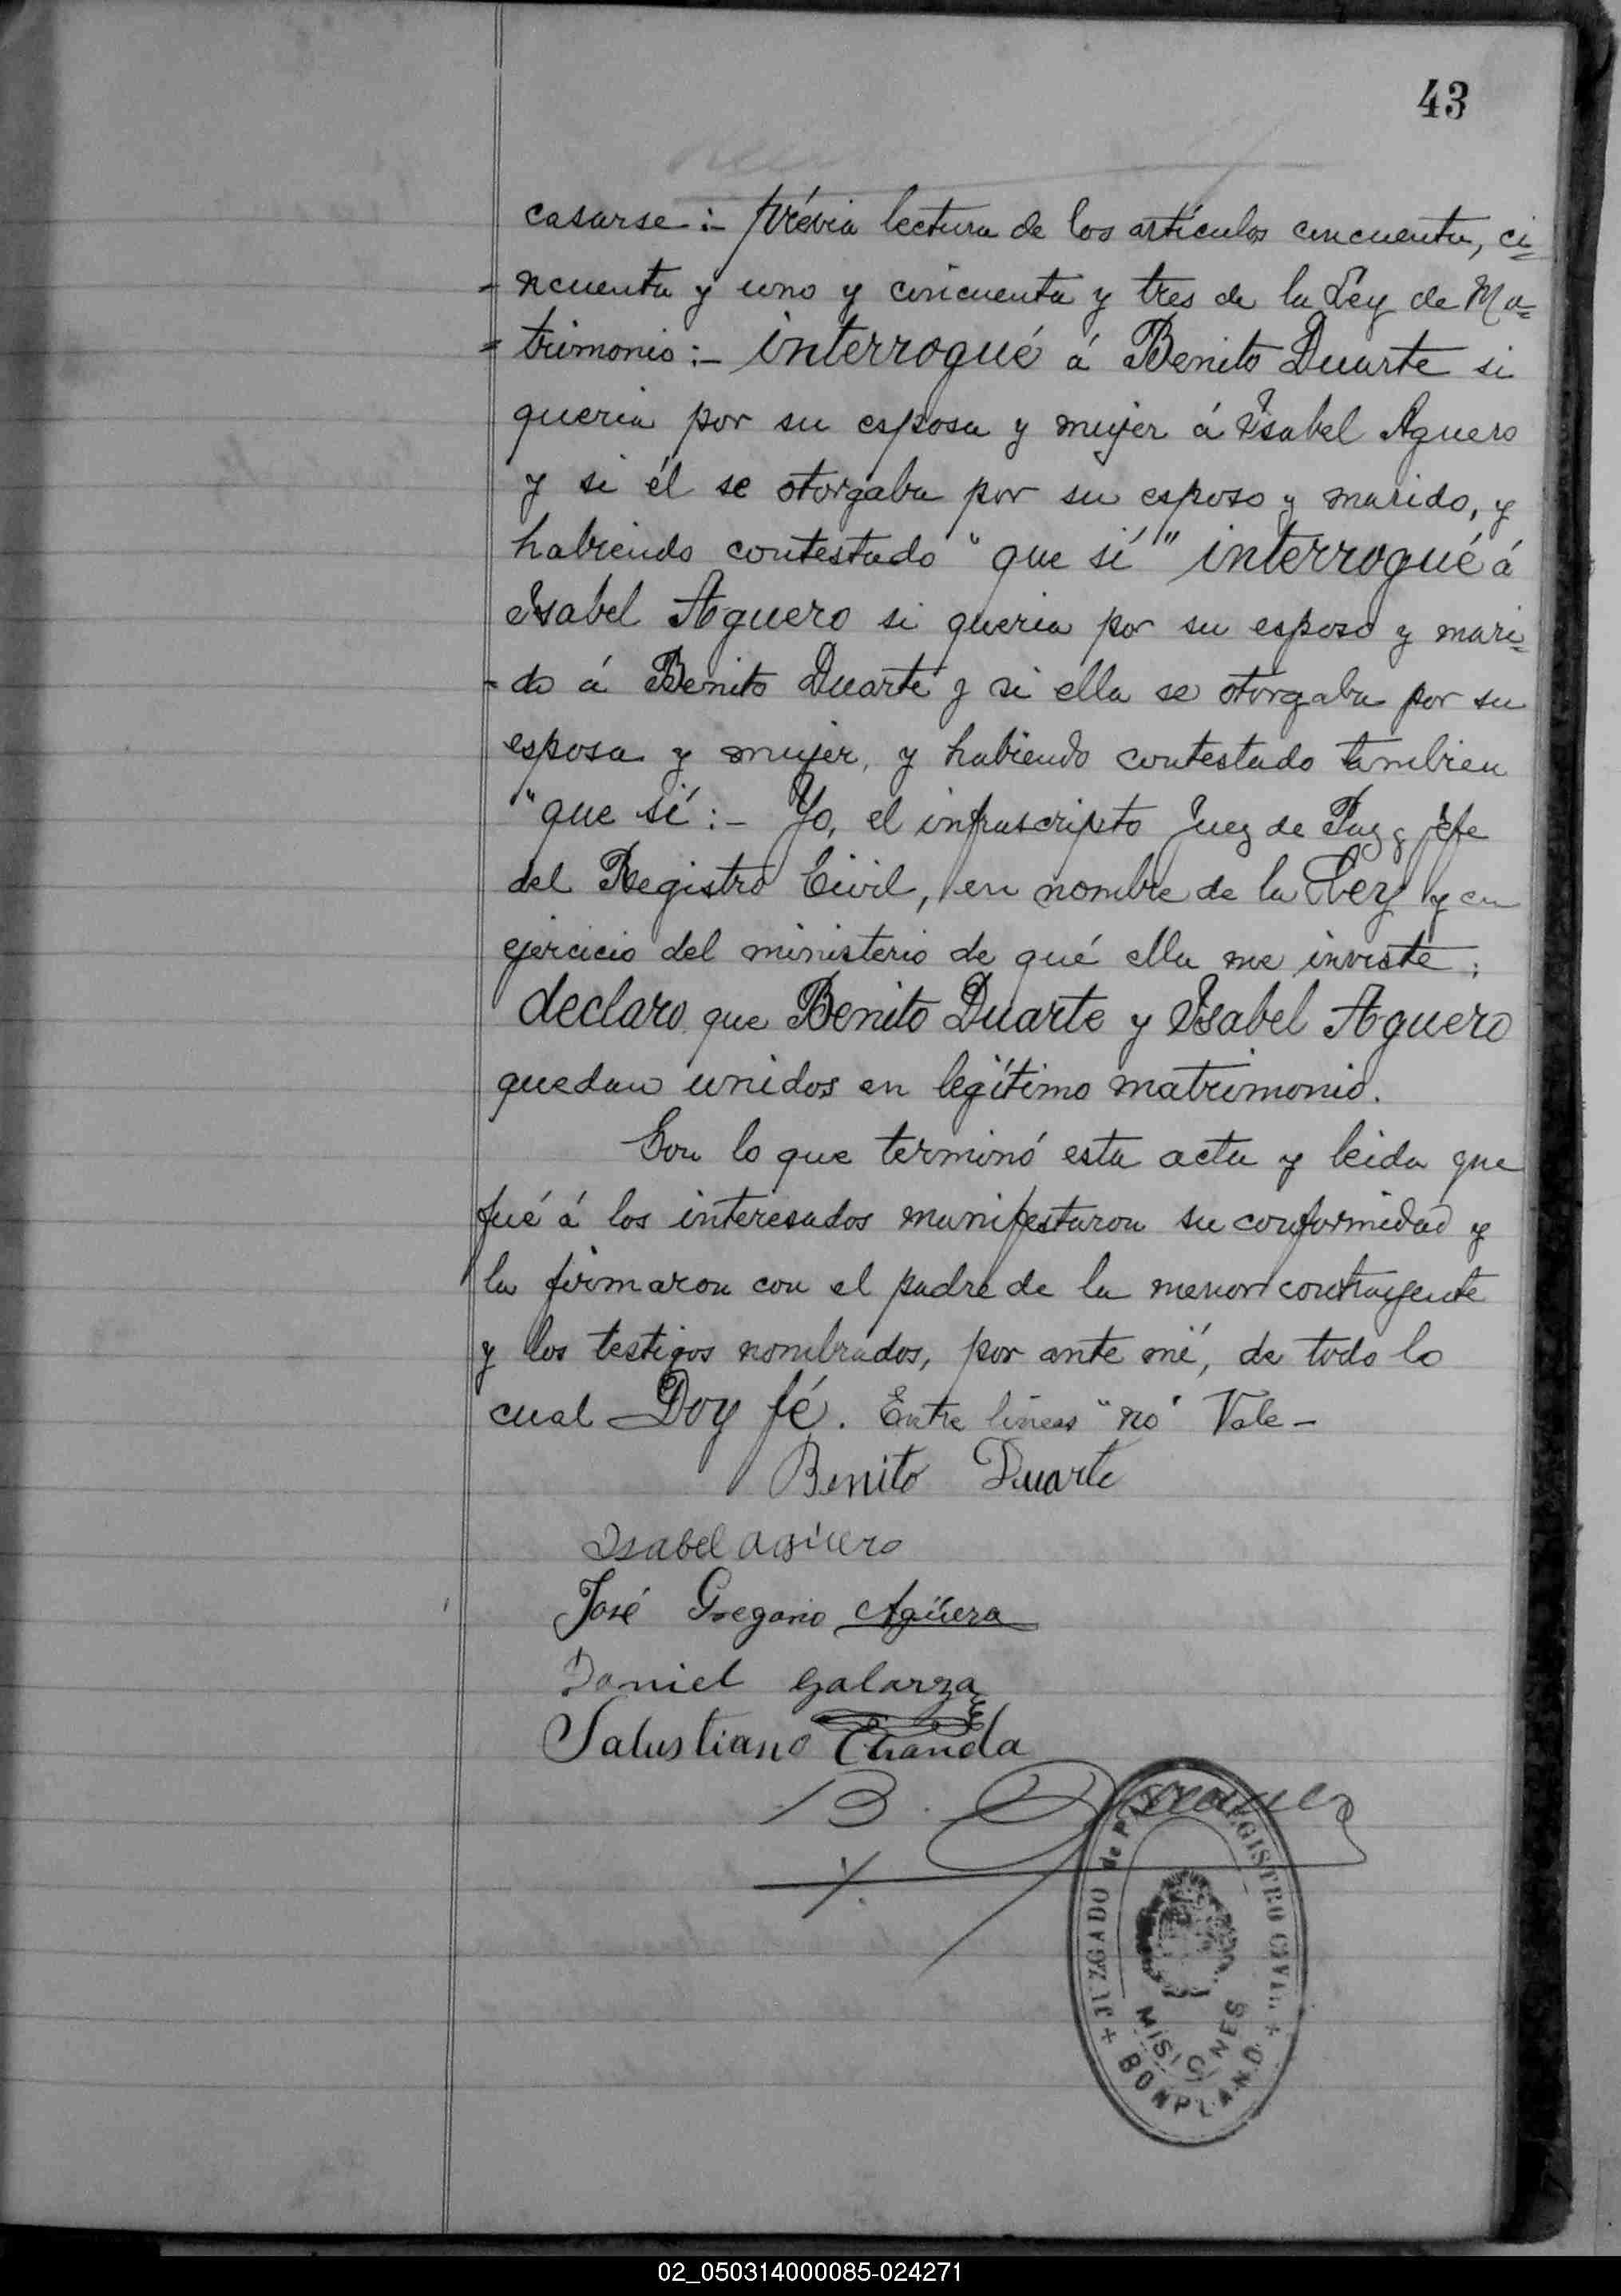 43
casarse:- prévia lectura de los artículos cincuenta, ci=
-ncuenta y uno y cincuenta y tres de la Ley de Ma=
=trimonio:- interrogué á Benito Duarte si
queria por su esposa y mujer á Isabel Aguero
y si él se otorgaba por su esposo y marido, y
habiendo contestado "que sí" interrogué á
Isabel Aguero si queria por su esposo y mari=
-do á Benito Duarte y si ella se otorgaba por su
esposa y mujer, y habiendo contestado tambien
"que sí:- Yo, el infrascripto Juez de Paz y jefe
del Registro Civil, en nombre de la Ley y en
ejercicio del ministerio de qué ella me inviste;
declaro que Benito Duarte y Isabel Aguero
quedan unidos en legítimo matrimonio.
Con lo que terminó esta acta y leida que
fué á los interesados manifestaron su conformidad y
la firmaron con el padre de la menor contrayente
y los testigos nombrados, por ante mí, de todo lo
cual Doy fé. Entre lineas "no" Vale-
Benito Duarte
Isabel agüero
José Gregorio Agüero
Daniel galarza
Salustiano
B.
JUZGADO de PAZ REGISTRO CIVIL
MISIONES
+ BONPLAND +
02_050314000085-024271